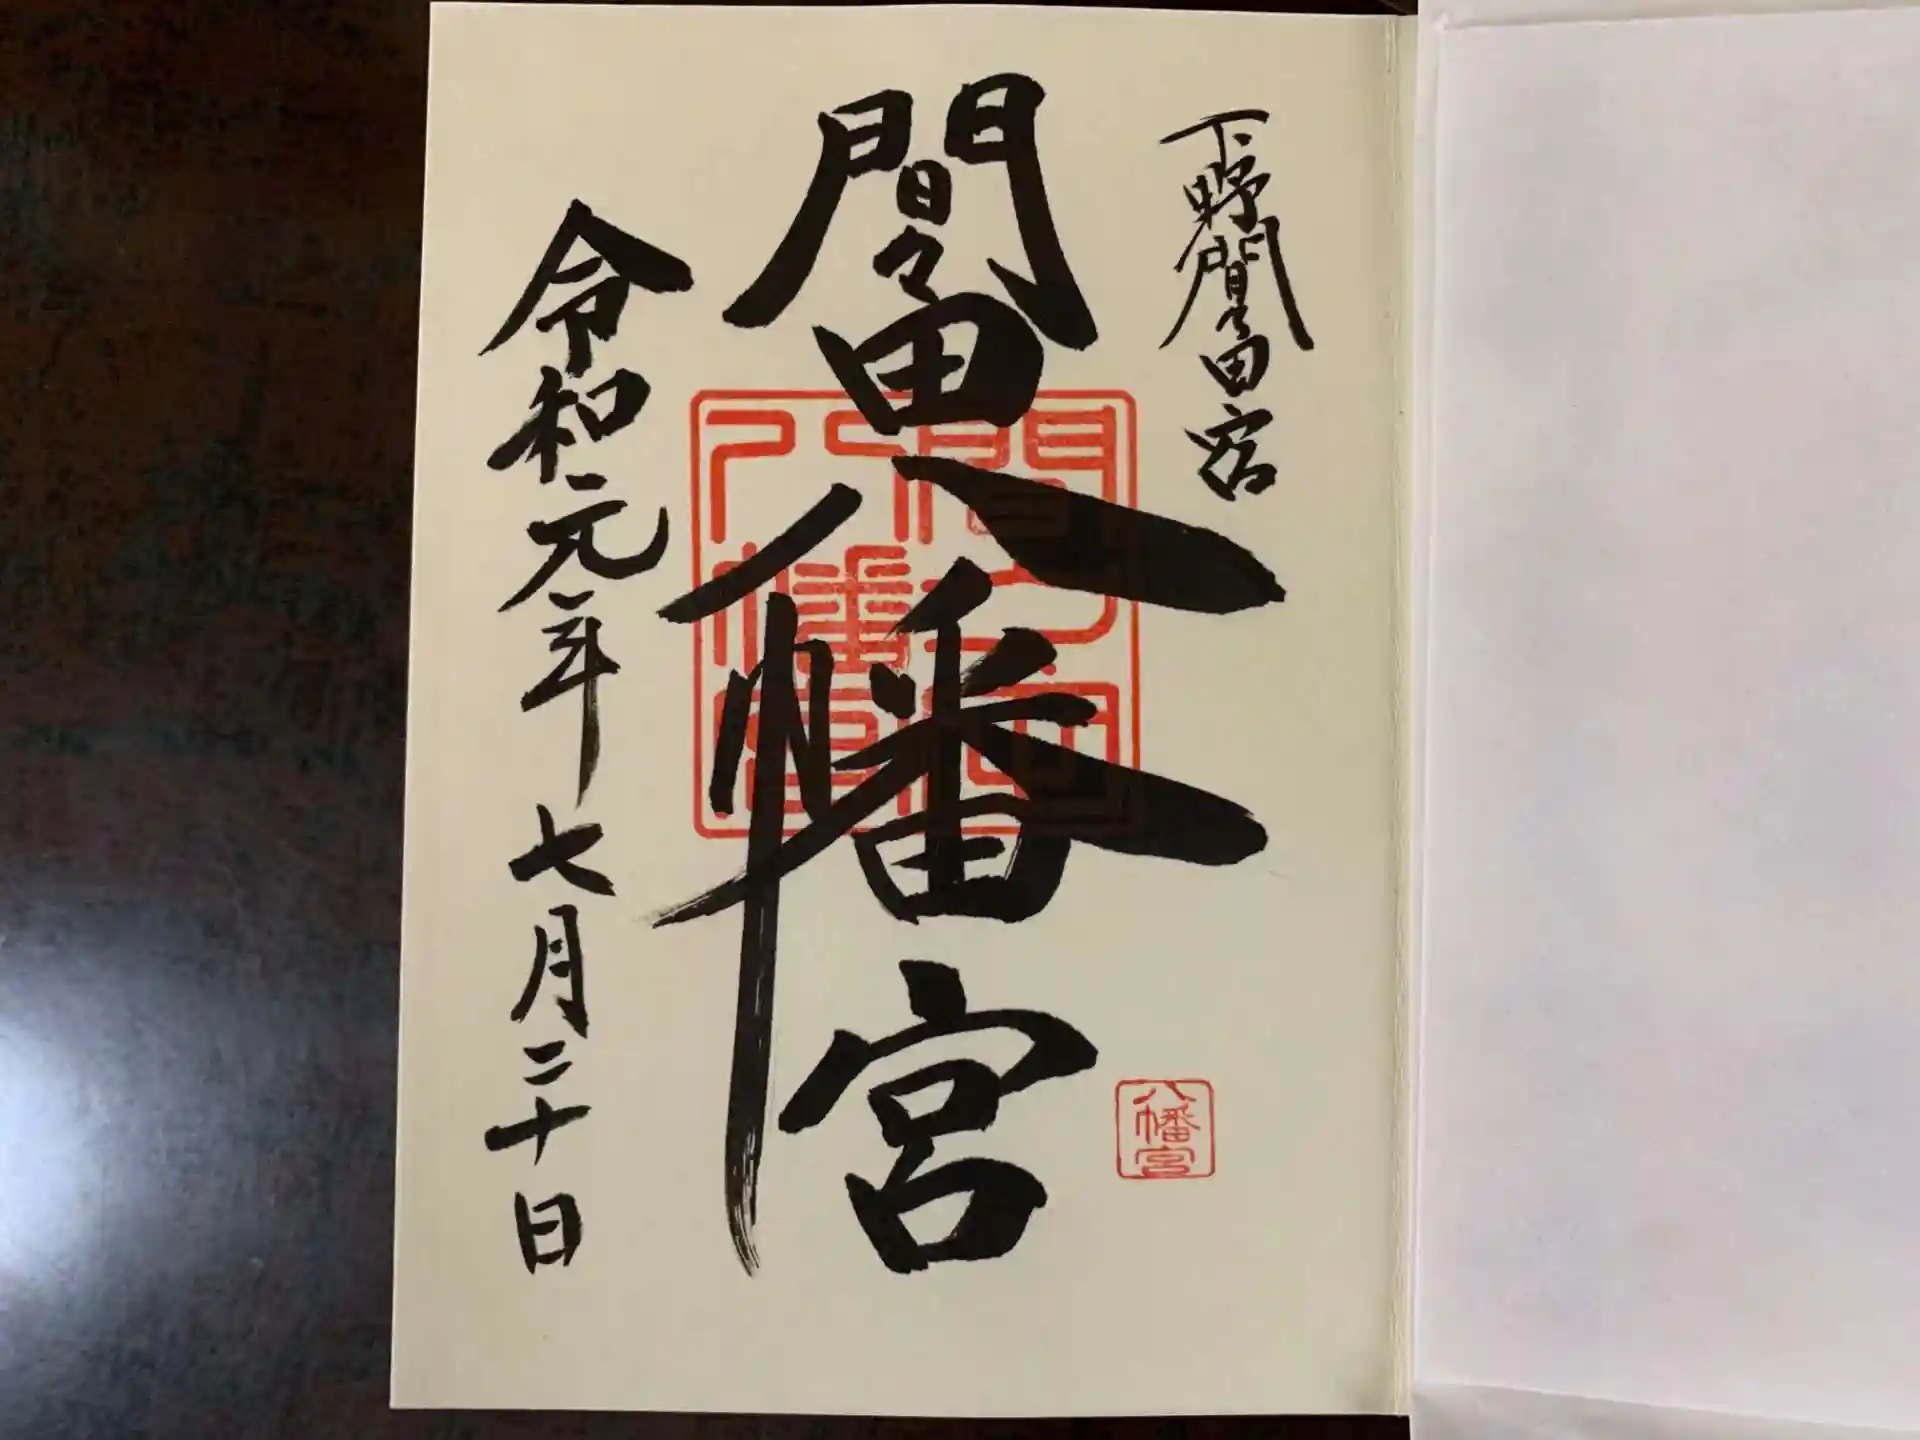 下野間々田宿
間々田八幡宮
令和元年七月二十日
間々田八幡宮
八幡宮